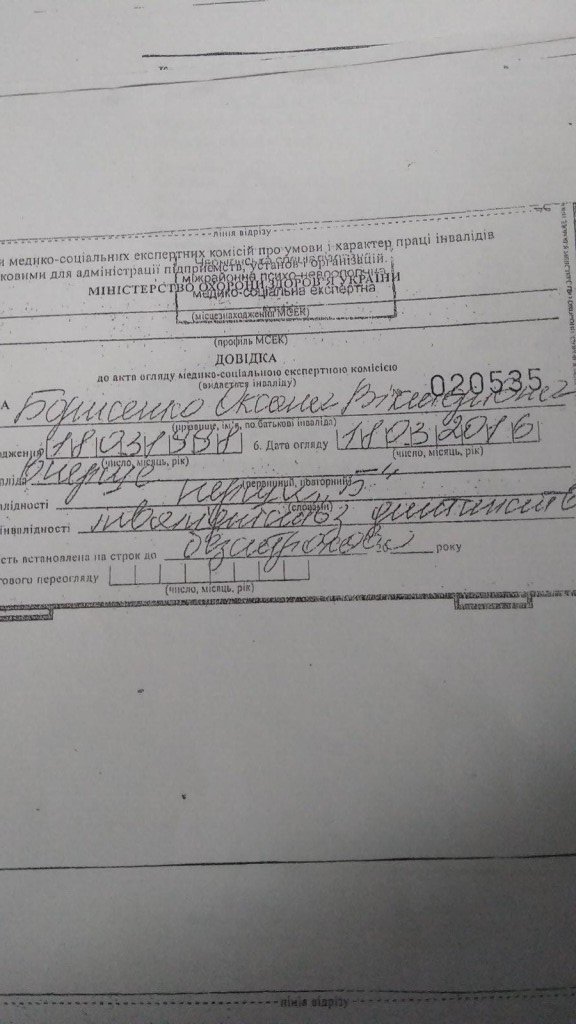 лінія відрізу
и медико-соціальних експертних комісій про умови і характер праці інвалідів
ковими для адміністрації підприємств, установ і організацій.
міжрайонна психо-неврологічна
МІНІСТЕРСТВО ОХОРОНИ ЗДОРОВ'Я УКРАЇНИ
медико-соціальна експертна
(місцезнаходження МСЕК)
(профіль МСЕК)
ДОВІДКА
до акта огляду медико-соціальною експертною комісією
(видається інваліду)
020535
А Борисенко Оксана
(прізвище, ім'я, по батькові інваліда)
дження 18 03 1998 6. Дата огляду 18 03 2016
(число, місяць, рік) (число, місяць, рік)
ліда вперше
(первинний, повторний)
алідності перша Б
(словами)
інвалідності інвалідність з дитинства
ість встановлена на строк до безстроково 20 року
гового переогляду
(число, місяць, рік)
лінія відрізу